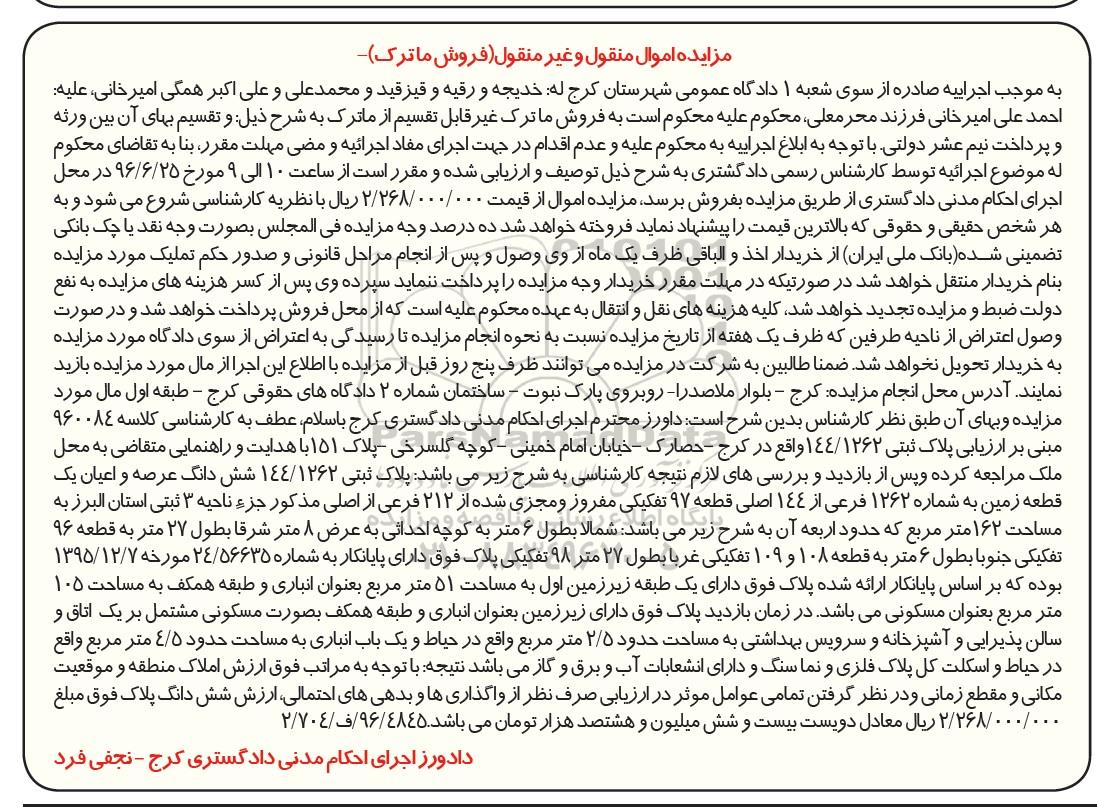 مزایده اموال منقول و غیر منقول(فروش ماترک)-
به موجب اجراییه صادره از سوی شعبه ۱ دادگاه عمومی شهرستان کرج له: خدیجه و رقیه و قیزقید و محمدعلی و علی اکبر همگی امیرخانی، علیه:
احمد علی امیرخانی فرزند محرمعلی، محکوم علیه محکوم است به فروش ماترک غیرقابل تقسیم از ماترک به شرح ذیل: و تقسیم بهای آن بین ورثه
و پرداخت نیم عشر دولتی. با توجه به ابلاغ اجراییه به محکوم علیه و عدم اقدام در جهت اجرای مفاد اجرائیه و مضی مهلت مقرر، بنا به تقاضای محکوم
له موضوع اجرائیه توسط کارشناس رسمی دادگستری به شرح ذیل توصیف و ارزیابی شده و مقرر است از ساعت ۱۰ الی ۹ مورخ ۹۶/۶/۲۵ در محل
اجرای احکام مدنی دادگستری از طریق مزایده بفروش برسد، مزایده اموال از قیمت ۲/۲۶۸/۰۰۰/۰۰۰ ریال با نظریه کارشناسی شروع می شود و به
هر شخص حقیقی و حقوقی که بالاترین قیمت را پیشنهاد نماید فروخته خواهد شد ده درصد وجه مزایده فی المجلس بصورت وجه نقد یا چک بانکی
تضمینی شده(بانک ملی ایران) از خریدار اخذ و الباقی ظرف یک ماه از وی وصول و پس از انجام مراحل قانونی و صدور حکم تملیک مورد مزایده
بنام خریدار منتقل خواهد شد در صورتیکه در مهلت مقرر خریدار وجه مزایده را پرداخت ننماید سپرده وی پس از کسر هزینه های مزایده به نفع
دولت ضبط و مزایده تجدید خواهد شد، کلیه هزینه های نقل و انتقال به عهده محکوم علیه است که از محل فروش پرداخت خواهد شد و در صورت
وصول اعتراض از ناحیه طرفین که ظرف یک هفته از تاریخ مزایده نسبت به نحوه انجام مزایده تا رسیدگی به اعتراض از سوی دادگاه مورد مزایده
به خریدار تحویل نخواهد شد. ضمنا طالبین به شرکت در مزایده می توانند ظرف پنج روز قبل از مزایده با اطلاع این اجرا از مال مورد مزایده بازید
نمایند. آدرس محل انجام مزایده: کرج – بلوار ملاصدرا- روبروی پارک نبوت – ساختمان شماره ۲ دادگاه های حقوقی کرج – طبقه اول مال مورد
مزایده وبهای آن طبق نظر کارشناس بدین شرح است: داورز محترم اجرای احکام مدنی دادگستری کرج باسلام، عطف به کارشناسی کلاسه ۹۶۰۰۸۴
مبنی بر ارزیابی پلاک ثبتی ۱۴۴/۱۲۶۲واقع در کرج –حصارک –خیابان امام خمینی –کوچه گلسرخی –پلاک ۱۵۱با هدایت و راهنمایی متقاضی به محل
ملک مراجعه کرده وپس از بازدید و بررسی های لازم نتیجه کارشناسی به شرح زیر می باشد: پلاک ثبتی ۱۴۴/۱۲۶۲ شش دانگ عرصه و اعیان یک
قطعه زمین به شماره ۱۲۶۲ فرعی از ۱۴۴ اصلی قطعه ۹۷ تفکیکی مفروز ومجزی شده از ۲۱۲ فرعی از اصلی مذکور جزء ناحیه ۳ ثبتی استان البرز به
مساحت ۱۶۲متر مربع که حدود اربعه آن به شرح زیر می باشد: شمالا بطول ۶ متر به کوچه احداثی به عرض ۸ متر شرقا بطول ۲۷ متر به قطعه ۹۶
تفکیکی جنوبا بطول ۶ متر به قطعه ۱۰۸ و ۱۰۹ تفکیکی غربا بطول ۲۷ متر ۹۸ تفکیکی پلاک فوق دارای پایانکار به شماره ۲۴/۵۶۶۳۵ مورخه ۱۳۹۵/۱۲/۷
بوده که بر اساس پایانکار ارائه شده پلاک فوق دارای یک طبقه زیرزمین اول به مساحت ۵۱ متر مربع بعنوان انباری و طبقه همکف به مساحت ۱۰۵
متر مربع بعنوان مسکونی می باشد. در زمان بازدید پلاک فوق دارای زیرزمین بعنوان انباری و طبقه همکف بصورت مسکونی مشتمل بر یک اتاق و
سالن پذیرایی و آشپزخانه و سرویس بهداشتی به مساحت حدود ۲/۵ متر مربع واقع در حیاط و یک باب انباری به مساحت حدود ۴/۵ متر مربع واقع
در حیاط و اسکلت کل پلاک فلزی و نما سنگ و دارای انشعابات آب و برق و گاز می باشد نتیجه: با توجه به مراتب فوق ارزش املاک منطقه و موقعیت
مکانی و مقطع زمانی ودر نظر گرفتن تمامی عوامل موثر در ارزیابی صرف نظر از واگذاری ها و بدهی های احتمالی، ارزش شش دانگ پلاک فوق مبلغ
۲/۲۶۸/۰۰۰/۰۰۰ ریال معادل دویست بیست و شش میلیون و هشتصد هزار تومان می باشد.۹۶/۴۸۴۵/ف/۲/۷۰۴
دادورز اجرای احکام مدنی دادگستری کرج – نجفی فرد
ParsNamadData
پایگاه اطلاع رسانی مناقصه و مزایده